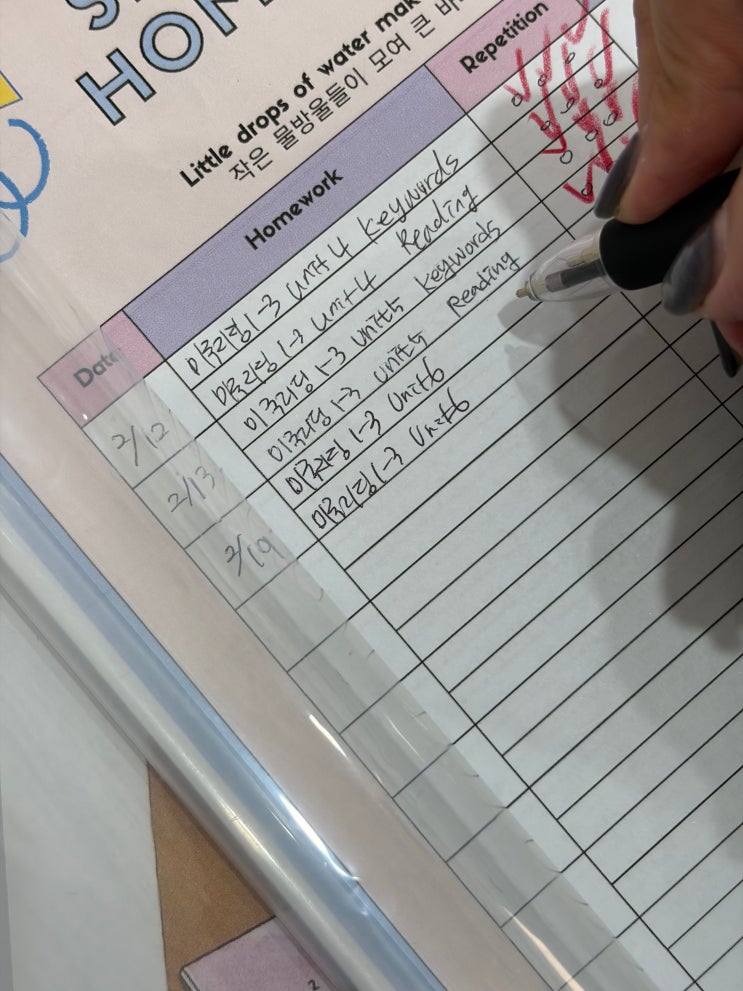 HOM
Little drops of water mak
작은 물방울들이 모여 큰 바
Date Homework Repetition
2/12 미국리딩 1-3 unit 4 keywords
미국리딩 1-3 unit 4 Reading
2/13 미국리딩 1-3 unit5 keywords
미국리딩 1-3 unit5 Reading
2/19 미국리딩 1-3 unit6
미국리딩 1-3 unit6
2